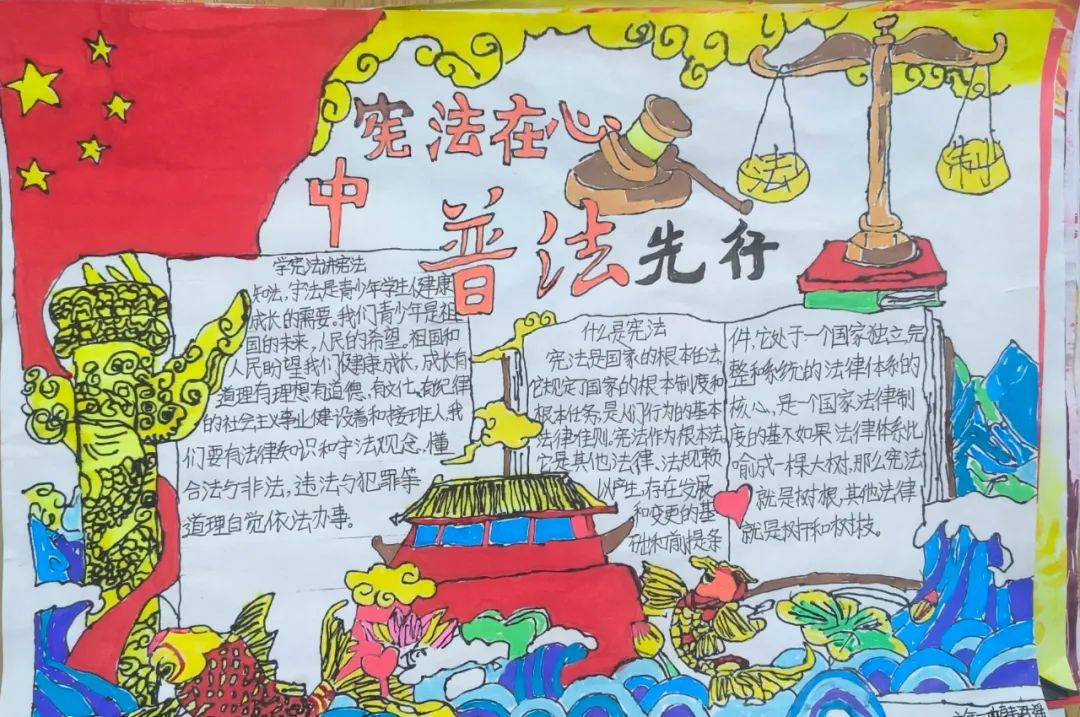 宪法在心
中
普法先行
法
制
学宪法讲宪法
知法,守法是青少年学生健康
成长的需要。我们青少年是祖
国的未来,人民的希望。祖国和
人民盼望我们健康成长,成长有
道理有理想有道德,有文化、有纪律
的社会主义事业健设着和接班人我
们要有法律知识和守法观念,懂
合法与非法,违法与犯罪等
道理自觉依法办事。
什么是宪法
宪法是国家的根本任法
它规定了国家的根本制度和
根本任务,是人们行为的基本
法律准则。宪法作为根本法
它是其他法律、法规赖
以产生,存在发展
和变更的基
础和前提条
件,它处于一个国家独立完
整和系统的法律体系的
核心,是一个国家法律制
度的基不如果法律体比
喻成一棵大树,那么宪法
就是树根,其他法律
就是树干和树枝。